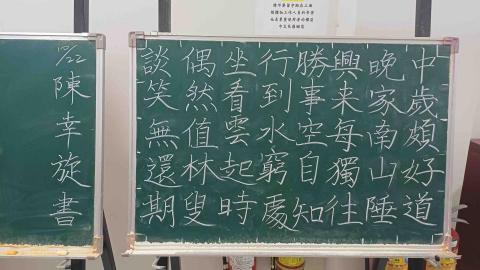 中歲頗好道
晚家南山陲
興来每獨往
勝事空自知
行到水窮處
坐看雲起時
偶然值林叟
談笑無還期
陳幸旋書